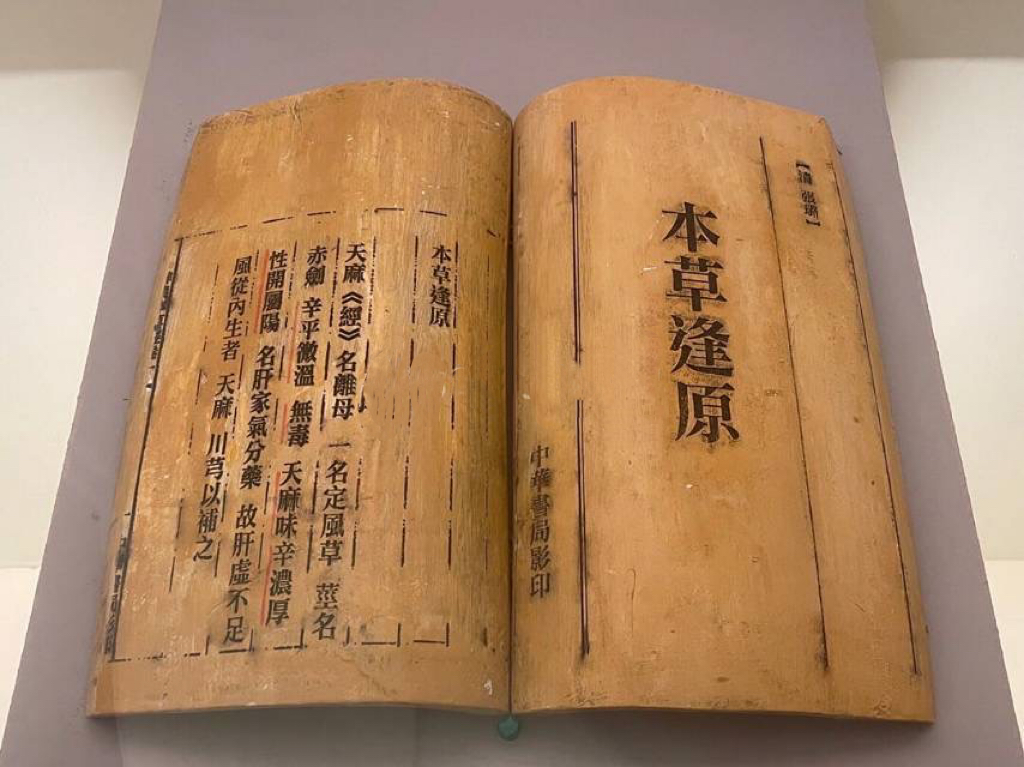 【清 張璐】
本草逢原
中華書局影印
本草逢原
天麻《經》名離母 一名定風草 莖名
赤劍 辛平微溫 無毒 天麻味辛濃厚
性開陽 名肝家氣分藥 故肝虛不足
風從內生者 天麻 川芎以補之